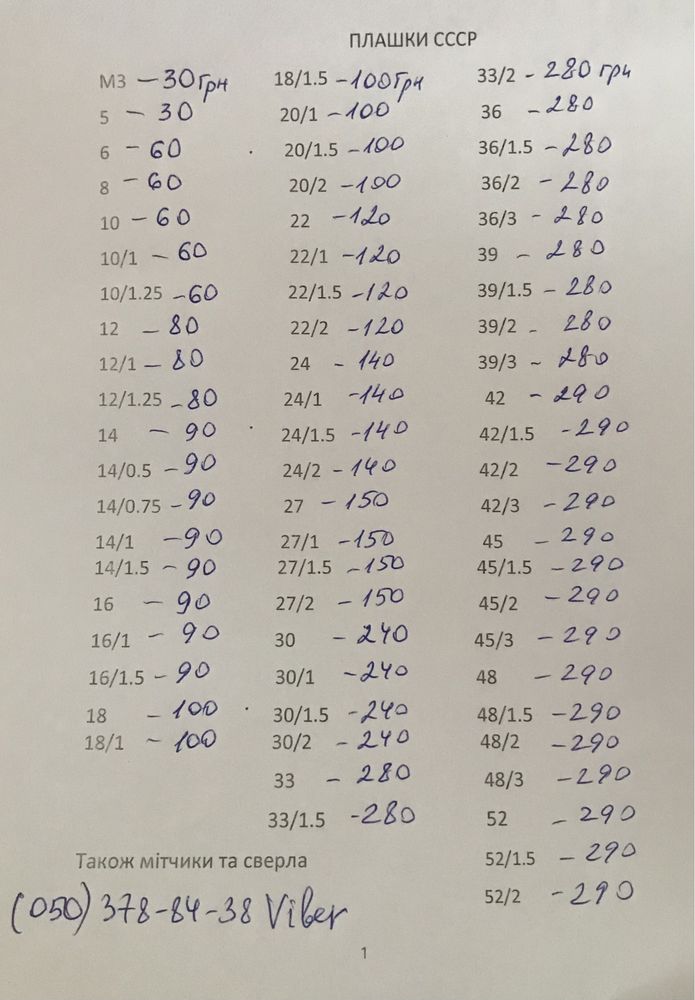 ПЛАШКИ СССР
М3 – 30 грн
5 – 30
6 – 60
8 – 60
10 – 60
10/1 – 60
10/1.25 – 60
12 – 80
12/1 – 80
12/1.25 – 80
14 – 90
14/0.5 – 90
14/0.75 – 90
14/1 – 90
14/1.5 – 90
16 – 90
16/1 – 90
16/1.5 – 90
18 – 100
18/1 – 100
18/1.5 – 100 грн
20/1 – 100
20/1.5 – 100
20/2 – 100
22 – 120
22/1 – 120
22/1.5 – 120
22/2 – 120
24 – 140
24/1 – 140
24/1.5 – 140
24/2 – 140
27 – 150
27/1 – 150
27/1.5 – 150
27/2 – 150
30 – 240
30/1 – 240
30/1.5 – 240
30/2 – 240
33 – 280
33/1.5 – 280
33/2 – 280 грн
36 – 280
36/1.5 – 280
36/2 – 280
36/3 – 280
39 – 280
39/1.5 – 280
39/2 – 280
39/3 – 280
42 – 290
42/1.5 – 290
42/2 – 290
42/3 – 290
45 – 290
45/1.5 – 290
45/2 – 290
45/3 – 290
48 – 290
48/1.5 – 290
48/2 – 290
48/3 – 290
52 – 290
52/1.5 – 290
52/2 – 290
Також мітчики та сверла
(050) 378-84-38 Viber
1